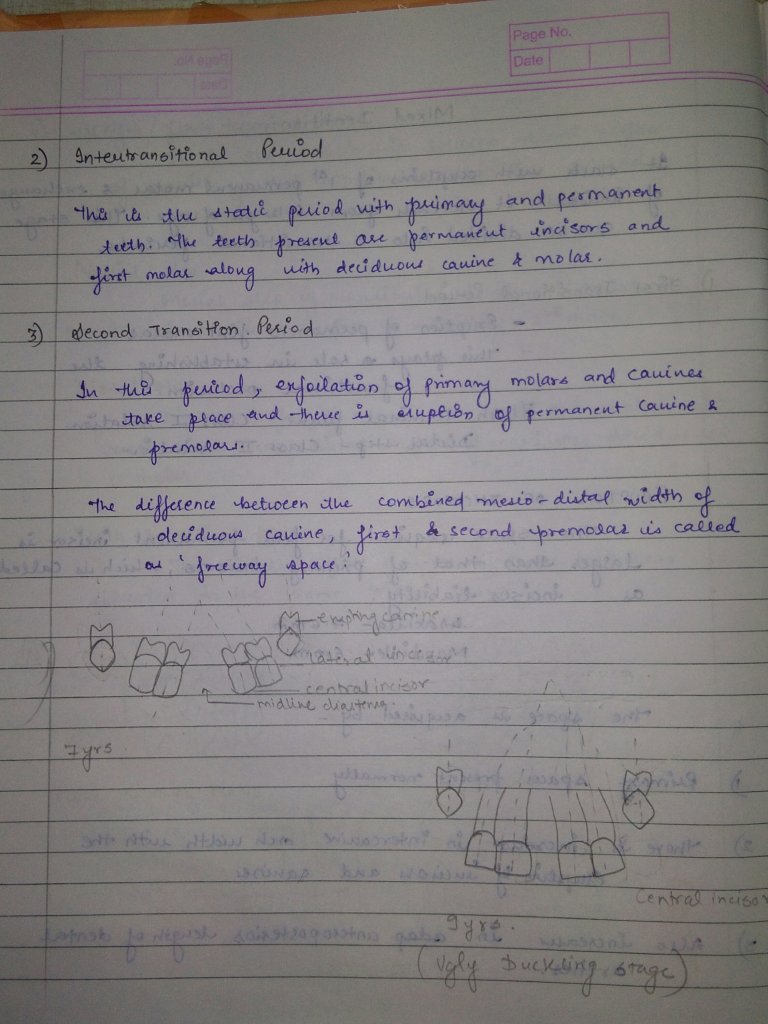 Page No.
Date
2) Intertransitional Period
This is the static period with primary and permanent
teeth. The teeth present are permanent incisors and
first molar along with deciduous canine & molar.
3) Second Transition Period -
In this period, exfoilation of primary molars and canines
take place and there is eruption of permanent canine &
premolars.
The difference between the combined mesio-distal width of
deciduous canine, first & second premolar is called
as 'freeway space.'
erupting canine
lateral incisor
central incisor
midline diastema.
7 yrs
Central incisor
9 yrs.
(Ugly Duckling stage)